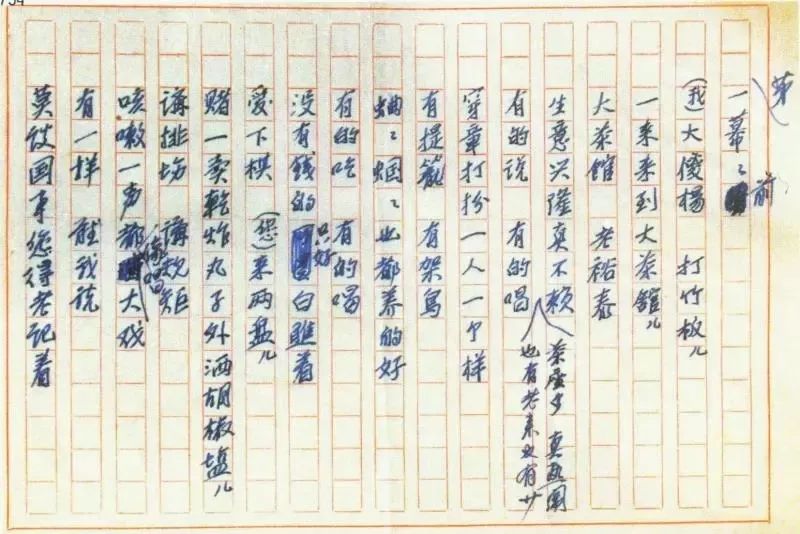 第一幕々前
(我)大傻楊 打竹板儿
一来来到大茶館儿
大茶館 老裕泰
生意兴隆真不赖
茶座多 真热闹
也有老来也有少
有的说 有的唱
穿章打扮一人一个样
有提籠 有架鸟
蛐々蝈々也都养的好
有的吃 有的喝
没有钱的只好白瞧着
爱下棋 (您)来两盘儿
赌一卖乾炸丸子外洒胡椒盐儿
讲排场 讲规矩
咳嗽一声都像唱大戏
有一样 听我说
莫谈国事您得老记着